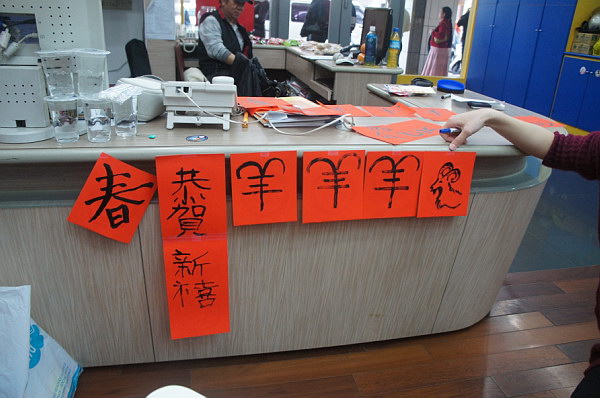 春
恭賀
新禧
羊 羊 羊